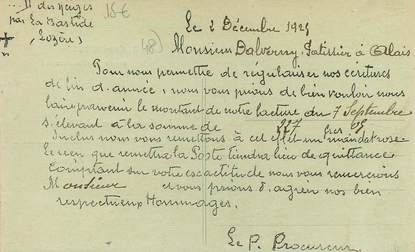 N. D. des Neiges
par La Bastide
Lozère
Le 2 Décembre 1925
Monsieur Balverny, Patissier à Alais
Pour nous permettre de régulariser nos écritures
de fin d'année, nous vous prions de bien vouloir nous
faire parvenir le montant de notre facture du 7 Septembre
s'élevant à la somme de 227 frcs
Inclus nous vous remettons à cet effet un mandat rose
Le reçu que remettra la Poste tiendra lieu de quittance
Comptant sur votre exactitude nous vous remercions
Monsieur et vous prions d'agréer nos bien
respectueux Hommages.
Le P. Procureur